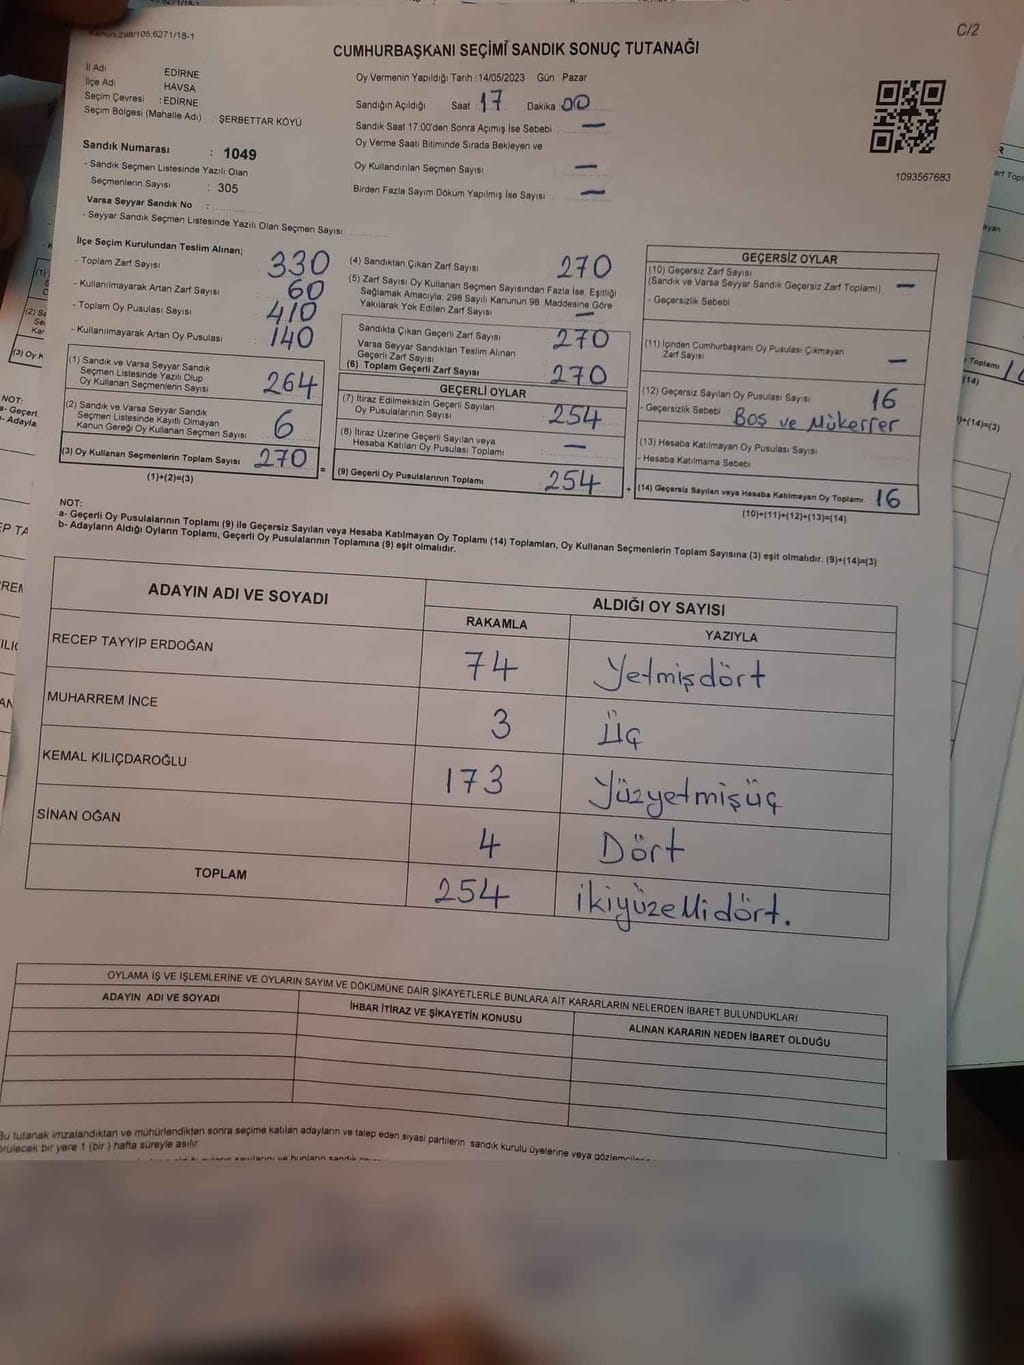 Kanun 298/105,6271/18-1
C/2
CUMHURBAŞKANI SEÇİMİ SANDIK SONUÇ TUTANAĞI
İl Adı : EDİRNE
İlçe Adı : HAVSA
Seçim Çevresi : EDİRNE
Seçim Bölgesi (Mahalle Adı) : ŞERBETTAR KÖYÜ
Sandık Numarası : 1049
- Sandık Seçmen Listesinde Yazılı Olan
Seçmenlerin Sayısı : 305
Varsa Seyyar Sandık No :
- Seyyar Sandık Seçmen Listesinde Yazılı Olan Seçmen Sayısı:
Oy Vermenin Yapıldığı Tarih : 14/05/2023 Gün : Pazar
Sandığın Açıldığı Saat : 17 Dakika : 00
Sandık Saat 17:00'den Sonra Açımış İse Sebebi : —
Oy Verme Saati Bitiminde Sırada Bekleyen ve
Oy Kullandırılan Seçmen Sayısı : —
Birden Fazla Sayım Döküm Yapılmış İse Sayısı : —
1093567683
İlçe Seçim Kurulundan Teslim Alınan;
- Toplam Zarf Sayısı : 330
- Kullanılmayarak Artan Zarf Sayısı : 60
- Toplam Oy Pusulası Sayısı : 410
- Kullanılmayarak Artan Oy Pusulası : 140
(1) Sandık ve Varsa Seyyar Sandık
Seçmen Listesinde Yazılı Olup
Oy Kullanan Seçmenlerin Sayısı 264
(2) Sandık ve Varsa Seyyar Sandık
Seçmen Listesinde Kayıtlı Olmayan
Kanun Gereği Oy Kullanan Seçmen Sayısı 6
(3) Oy Kullanan Seçmenlerin Toplam Sayısı 270 =
(1)+(2)=(3)
(4) Sandıktan Çıkan Zarf Sayısı 270
(5) Zarf Sayısı Oy Kullanan Seçmen Sayısından Fazla İse, Eşitliği
Sağlamak Amacıyla, 298 Sayılı Kanunun 98. Maddesine Göre
Yakılarak Yok Edilen Zarf Sayısı : —
Sandıkta Çıkan Geçerli Zarf Sayısı 270
Varsa Seyyar Sandıktan Teslim Alınan
Geçerli Zarf Sayısı
(6) Toplam Geçerli Zarf Sayısı 270
GEÇERLİ OYLAR
(7) İtiraz Edilmeksizin Geçerli Sayılan
Oy Pusulalarının Sayısı 254
(8) İtiraz Üzerine Geçerli Sayılan veya
Hesaba Katılan Oy Pusulası Toplamı —
(9) Geçerli Oy Pusulalarının Toplamı 254 +
GEÇERSİZ OYLAR
(10) Geçersiz Zarf Sayısı
(Sandık ve Varsa Seyyar Sandık Geçersiz Zarf Toplamı) —
- Geçersizlik Sebebi
(11) İçinden Cumhurbaşkanı Oy Pusulası Çıkmayan
Zarf Sayısı —
(12) Geçersiz Sayılan Oy Pusulası Sayısı 16
- Geçersizlik Sebebi Boş ve Mükerrer
(13) Hesaba Katılmayan Oy Pusulası Sayısı
- Hesaba Katılmama Sebebi
(14) Geçersiz Sayılan veya Hesaba Katılmayan Oy Toplamı 16
(10)+(11)+(12)+(13)=(14)
NOT:
a- Geçerli Oy Pusulalarının Toplamı (9) ile Geçersiz Sayılan veya Hesaba Katılmayan Oy Toplamı (14) Toplamları, Oy Kullanan Seçmenlerin Toplam Sayısına (3) eşit olmalıdır. (9)+(14)=(3)
b- Adayların Aldığı Oyların Toplamı, Geçerli Oy Pusulalarının Toplamına (9) eşit olmalıdır.
ADAYIN ADI VE SOYADI
ALDIĞI OY SAYISI
RAKAMLA YAZIYLA
RECEP TAYYİP ERDOĞAN 74 Yetmişdört
MUHARREM İNCE 3 Üç
KEMAL KILIÇDAROĞLU 173 Yüzyetmişüç
SİNAN OĞAN 4 Dört
TOPLAM 254 ikiyüzellidört.
OYLAMA İŞ VE İŞLEMLERİNE VE OYLARIN SAYIM VE DÖKÜMÜNE DAİR ŞİKAYETLERLE BUNLARA AİT KARARLARIN NELERDEN İBARET BULUNDUKLARI
ADAYIN ADI VE SOYADI İHBAR İTİRAZ VE ŞİKAYETİN KONUSU ALINAN KARARIN NEDEN İBARET OLDUĞU
Bu tutanak imzalandıktan ve mühürlendikten sonra seçime katılan adayların ve talep eden siyasi partilerin sandık kurulu üyelerine veya gözlemcilerine
görülecek bir yere 1 (bir ) hafta süreyle asılır.